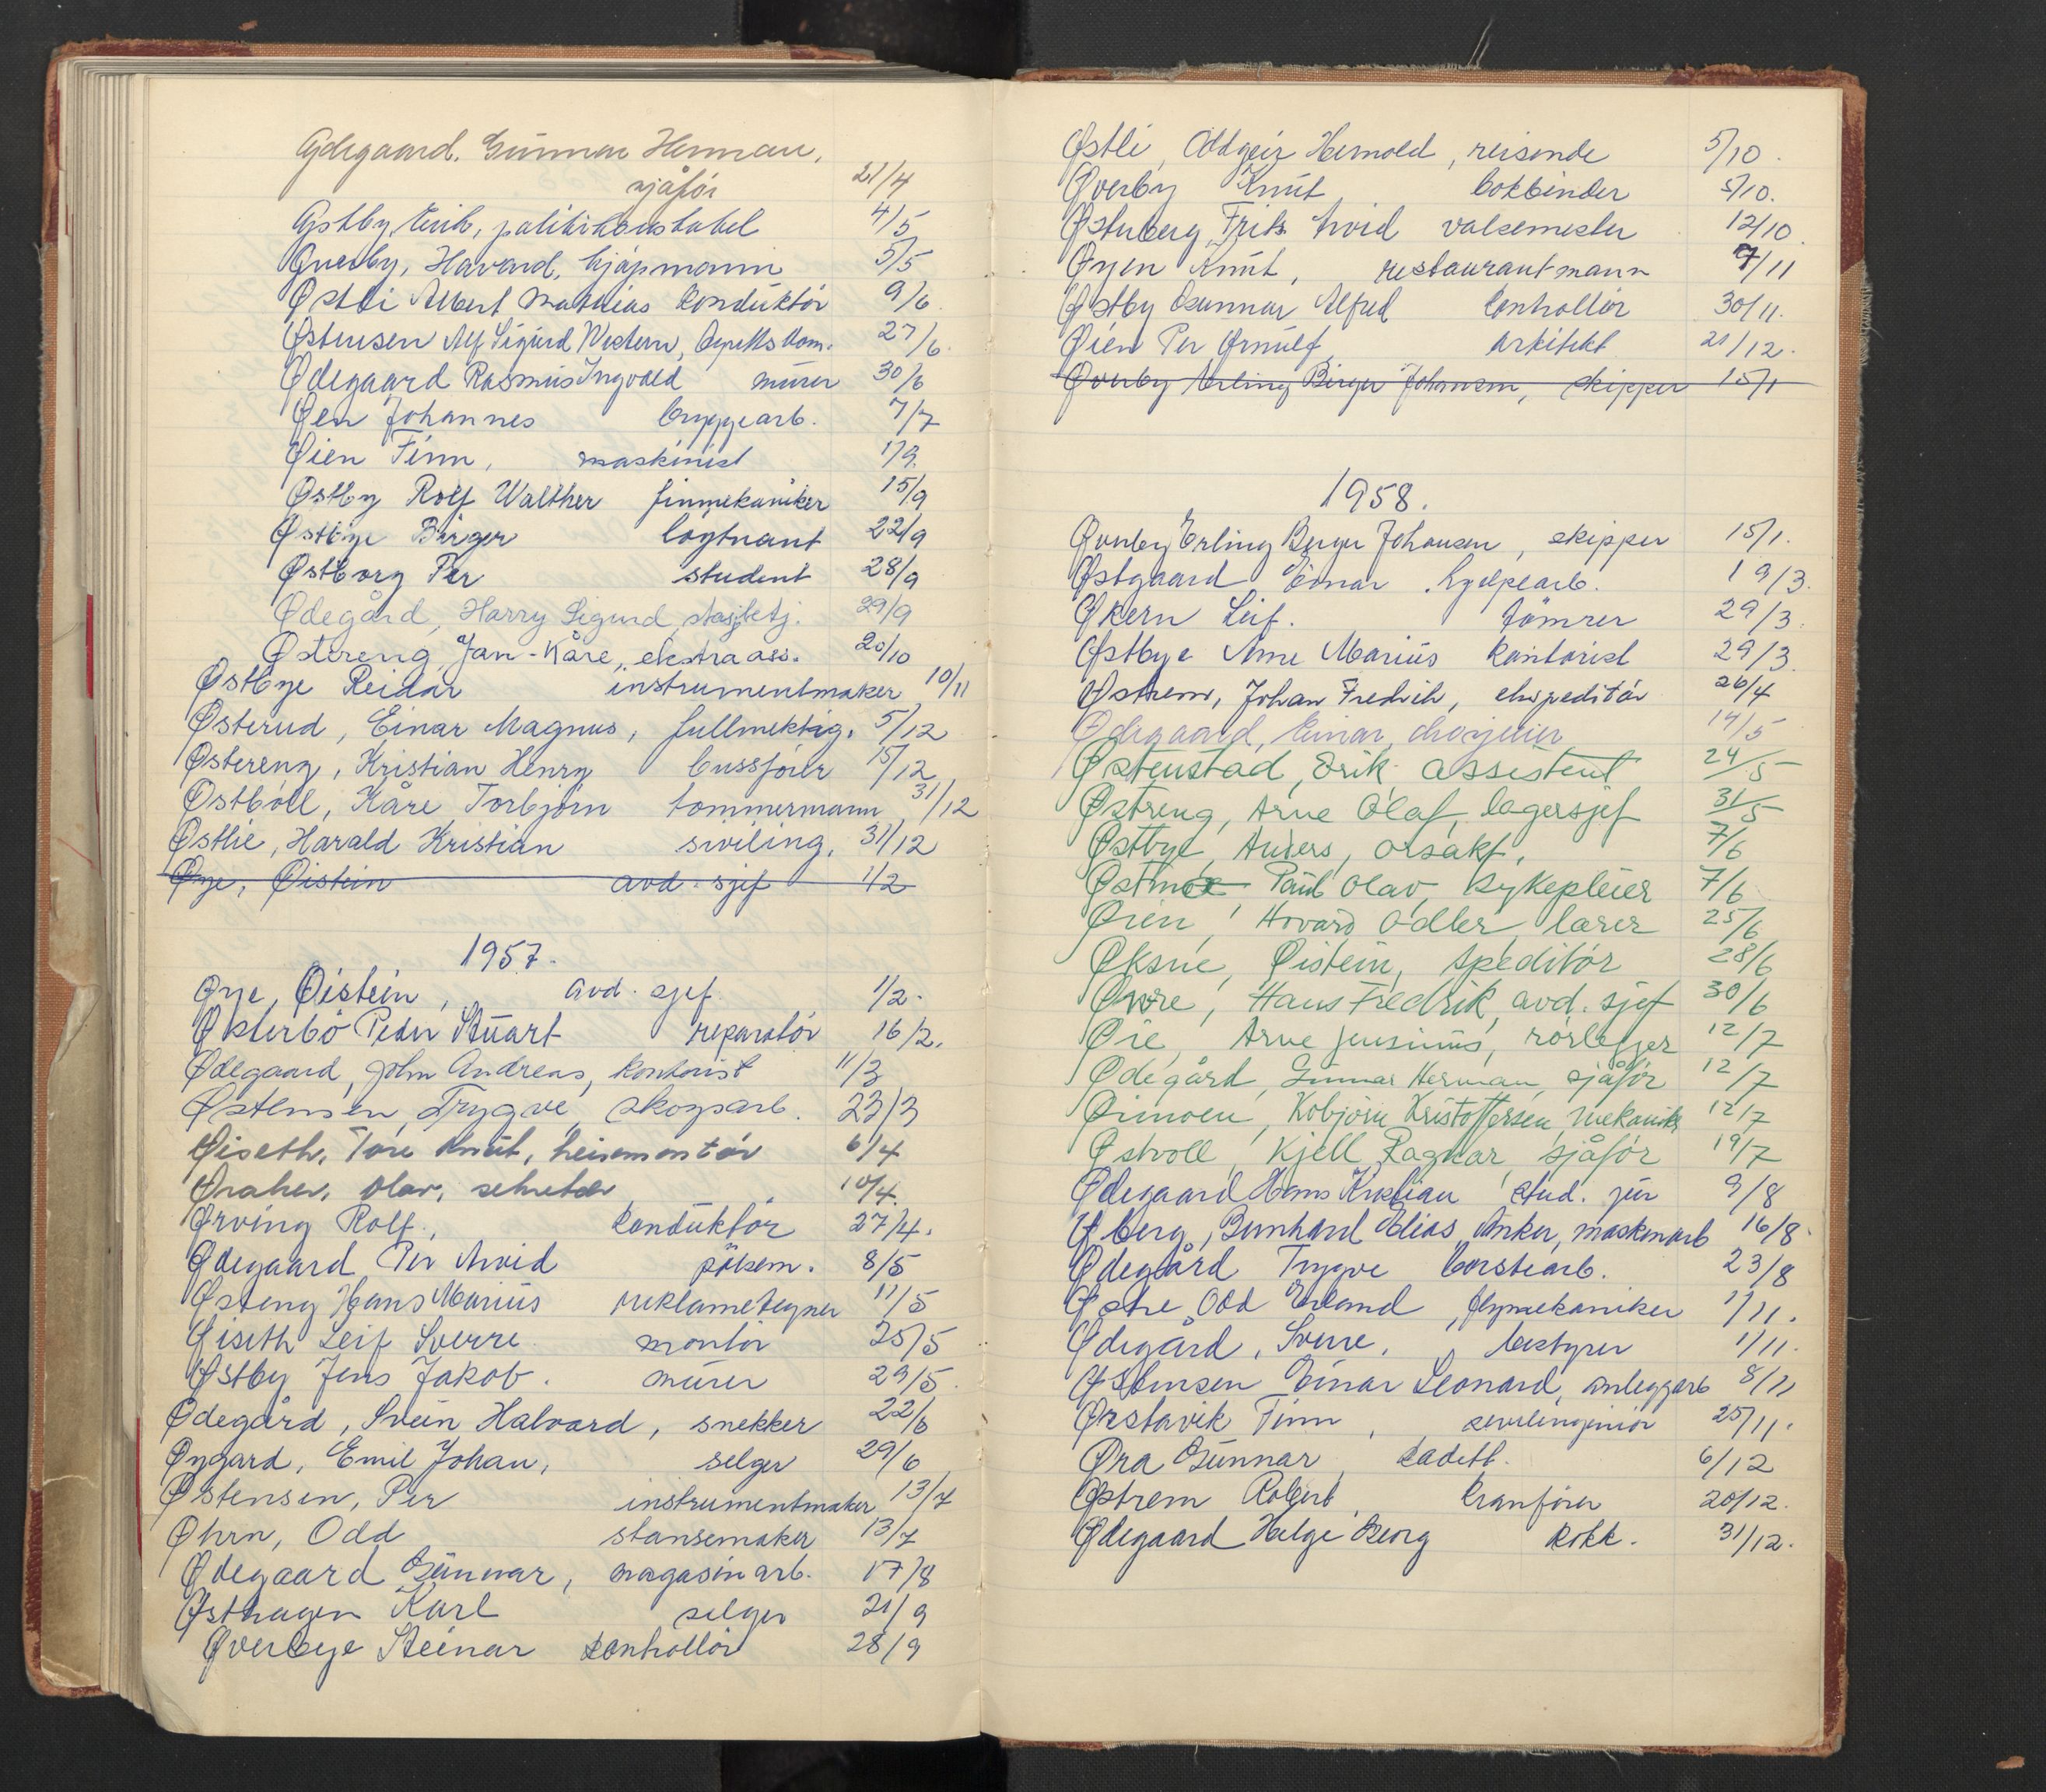 Ødegaard, Gunnar Herman,
sjåfør 21/4
Østby, Erik, politikonstabel 4/5
Øverby, Håvard, kjøpmann 5/5
Østbi Albert Mathias konduktör 9/6
Østensen Alf Sigurd Western, 27/6
Ødegaard Rasmus Ingvald murer 30/6
Øen Johannes bryggearb. 7/7
Øien Finn, maskinist 1/9
Østby Rolf Walther finmekaniker 15/9
Østbye Birger löytnant 22/9
Østborg Per student 28/9
Ødegård, Harry Sigurd 29/9
Østereng, Jan-Kåre, ekstraass. 20/10
Østbye Reidar instrumentmaker 10/11
Østerud, Einar Magnus, fullmektig. 5/12
Østereng, Kristian Henry bussförer 15/12
Østböll, Kåre Torbjörn tommermann 31/12
Østlie, Harald Kristian siviling. 31/12
Øye, Øistein avd. sjef 1/2
1957.
Øye, Øistein, avd. sjef 1/2.
Østerbö Peder Stuart reparatör 16/2.
Ødegaard, John Andreas, kontorist 11/3
Østensen, Trygve, skogsarb. 23/3
Øiseth, Tore Knut, heismontör 6/4
Øraker, Olav, sekretær 10/4.
Ørving Rolf, konduktör 27/4.
Ødegaard Per Arvid pölsem. 8/5
Østeng Hans Marius reklametegner 11/5
Øiseth Leif Sverre montör 25/5
Østby Jens Jakob. murer 29/5.
Ødegård, Svein Halvard, snekker 22/6
Øygard, Emil Johan, selger 29/6
Østensen, Per instrumentmaker 13/7
Øhrn, Odd stansemaker 13/7
Ødegaard Gunnar, magasinarb. 17/8
Østhagen Karl selger 21/9
Øverbye Steinar kontrollör 28/9
Østli, Oddgeir Hernold, reisende 5/10.
Øverby Knut bokbinder 5/10.
Østerberg, Frits Arvid valsemester 12/10.
Øyen Knut, restaurantmann 7/11
Østby Gunnar Alfred kontrollör 30/11.
Øien Per Ørnulf arkitekt 21/12.
Øverby Erling Birger Johansen, skipper 15/1
1958.
Øverby Erling Birger Johansen, skipper 15/1.
Østgaard Einar hjelpearb. 19/3.
Økern Leif. tömrer 29/3.
Østbye Arne Marius kontorist 29/3.
Østrem, Johan Fredrik, ekspeditör 26/4
Ødegaard, Einar, 14/5
Østenstad, Erik assistent 24/5
Østreng, Arne Olaf, lagersjef 31/5
Østbye, Anders, orsakf. 7/6
Østmoe Paul Olav, sykepleier 7/6
Øien, Hovard Odler, lærer 25/6
Øksne, Øistein, speditör 28/6
Øvre, Hans Fredrik, avd. sjef 30/6
Øie, Arne Jensinius, rörlegger 12/7
Ødegård, Gunnar Herman, sjåför 12/7
Øimoen, Kolbjörn Kristoffersen, mekaniker 12/7
Østvoll, Kjell Ragnar, sjåför 19/7
Ødegaard Hans Kristian stud. jur 9/8
Øberg, Bernhard Elias Anker, maskinarb 16/8.
Ødegård Trygve börstearb. 23/8
Østre, Odd Erland, flymekaniker 1/11.
Ødegård, Sverre, bestyrer 1/11.
Einar Leonard, anleggarb 8/11
Ørstavik Finn, sivilingeniör 25/11.
Øra Gunnar, kadett. 6/12
Østrem Robert, kranförer 20/12.
Ødegaard Helge Georg kokk. 31/12.